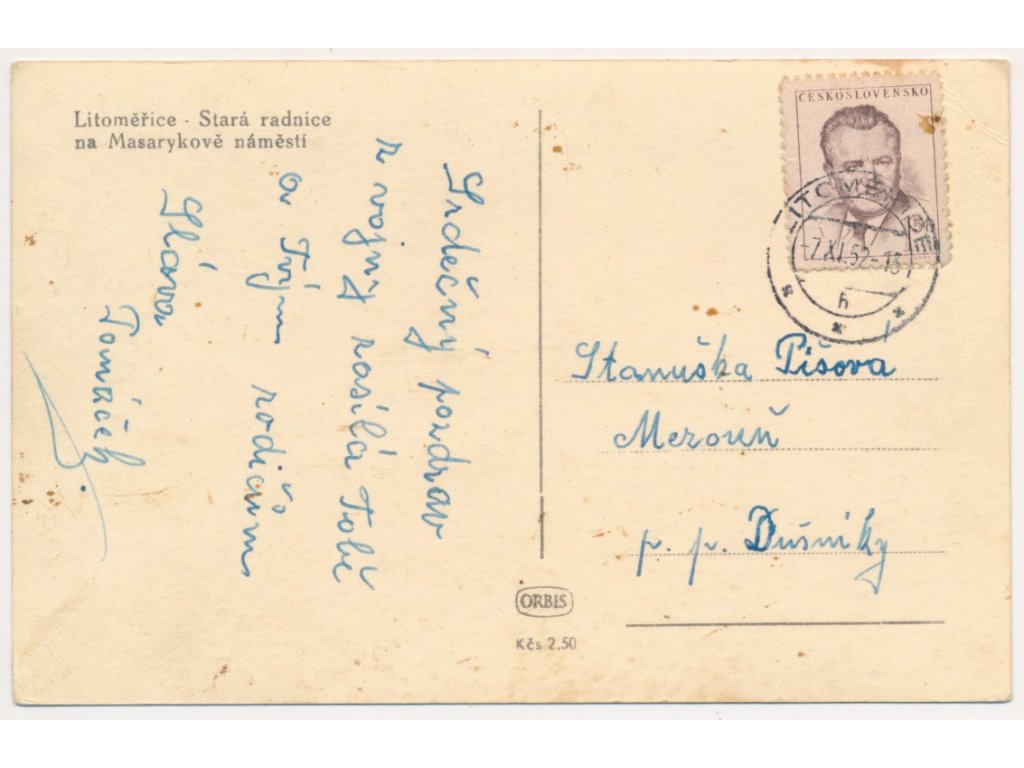 Litoměřice - Stará radnice
na Masarykově náměstí
Srdečný pozdrav
z vojny zasílá Tobě
a Tvým rodičům
Sláva
Tomáček
ČESKOSLOVENSKO
-7.XI.52-13
h
Stanuška Píšova
Mezouň
p. p. Dušníky
ORBIS
Kčs 2,50